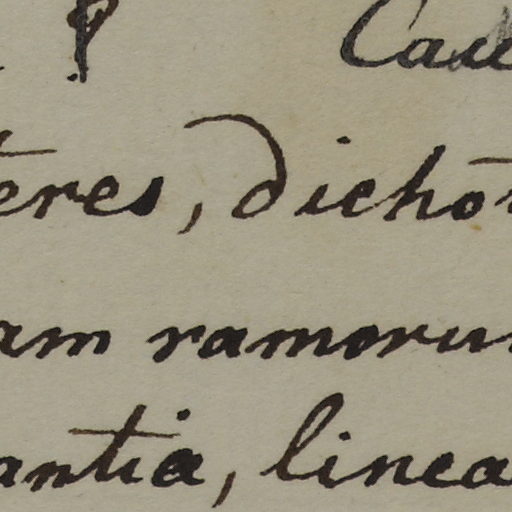 Cau
teres, dicho
am ramorum
antia, linea